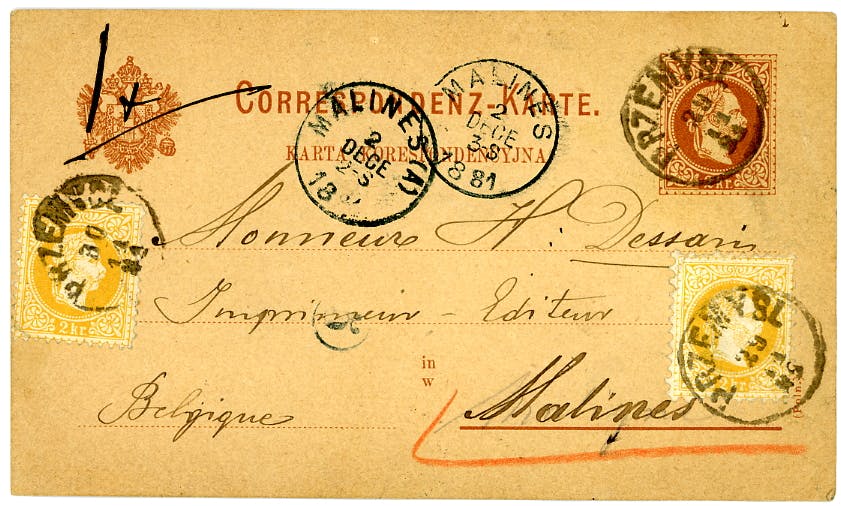 1x
CORRESPONDENZ-KARTE.
KARTA KORESPONDENCYJNA
MALINES (A)
2
DECE
2-3
18
MALINES
2
DECE
3-8
81
PRZEMYSL
PRZEMYSL
30
2 kr
Monsieur H. Dessain
Imprimeur - Editeur
in
w
Belgique
Malines
PRZEMYSL
(Poln.)